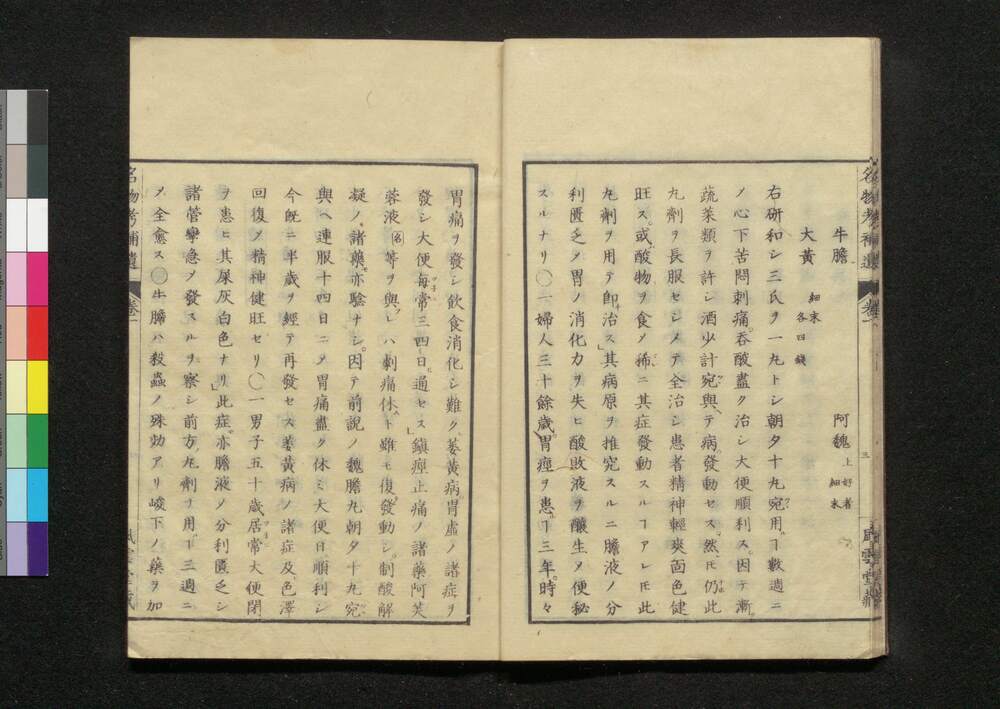 牛膽　　　阿魏 上好者 細末
大黄 細末 各四錢
右研和シ三氏ヲ一丸トシ朝夕十丸宛用ヿ數週ニ
ノ心下苦悶刺痛呑酸盡ク治シ大便順利ス因テ漸
蔬菜類ヲ許シ酒少計宛與テ病發動セス然ㇾ𪜈仍此
丸劑ヲ長服セシメテ全治シ患者精神輕爽面色健
旺ス或酸物ヲ食メ稀ニ其症發動スルヿアレ𪜈此
丸劑ヲ用テ即治ス其病原ヲ推究スルニ膽液ノ分
利匱乏メ胃ノ消化力ヲ失ヒ酸敗液ヲ釀生メ便秘
スルナリ〇一婦人三十餘歳胃痙ヲ患ヿ三年時々
胃痛ヲ發シ飲食消化シ難ク萎黄病胃虚ノ諸症ヲ
發シ大便毎常三四日通セス鎮痙止痛ノ諸藥阿芙
蓉液 名 等ヲ與レハ刺痛休ト雖モ復發動シ制酸解
凝ノ諸藥亦驗ナシ因テ前説ノ魏膽丸朝夕十丸宛
與ヘ連服十四日ニメ胃痛盡ク休ミ大便日順利シ
今既ニ半歳ヲ經テ再發セス萎黄病ノ諸症及色澤
回復メ精神健旺セリ〇一男子五十歳居常大便閉
ヲ患ヒ其屎灰白色ナリ此症亦膽液ノ分利匱乏シ
諸管攣急メ發スルヲ察シ前方丸劑ヲ用ヿ三週ニ
メ全愈ス〇牛膽ハ殺蟲ノ殊効アリ峻下ノ藥ヲ加
名物考補遺　卷一
三
風雲堂藏